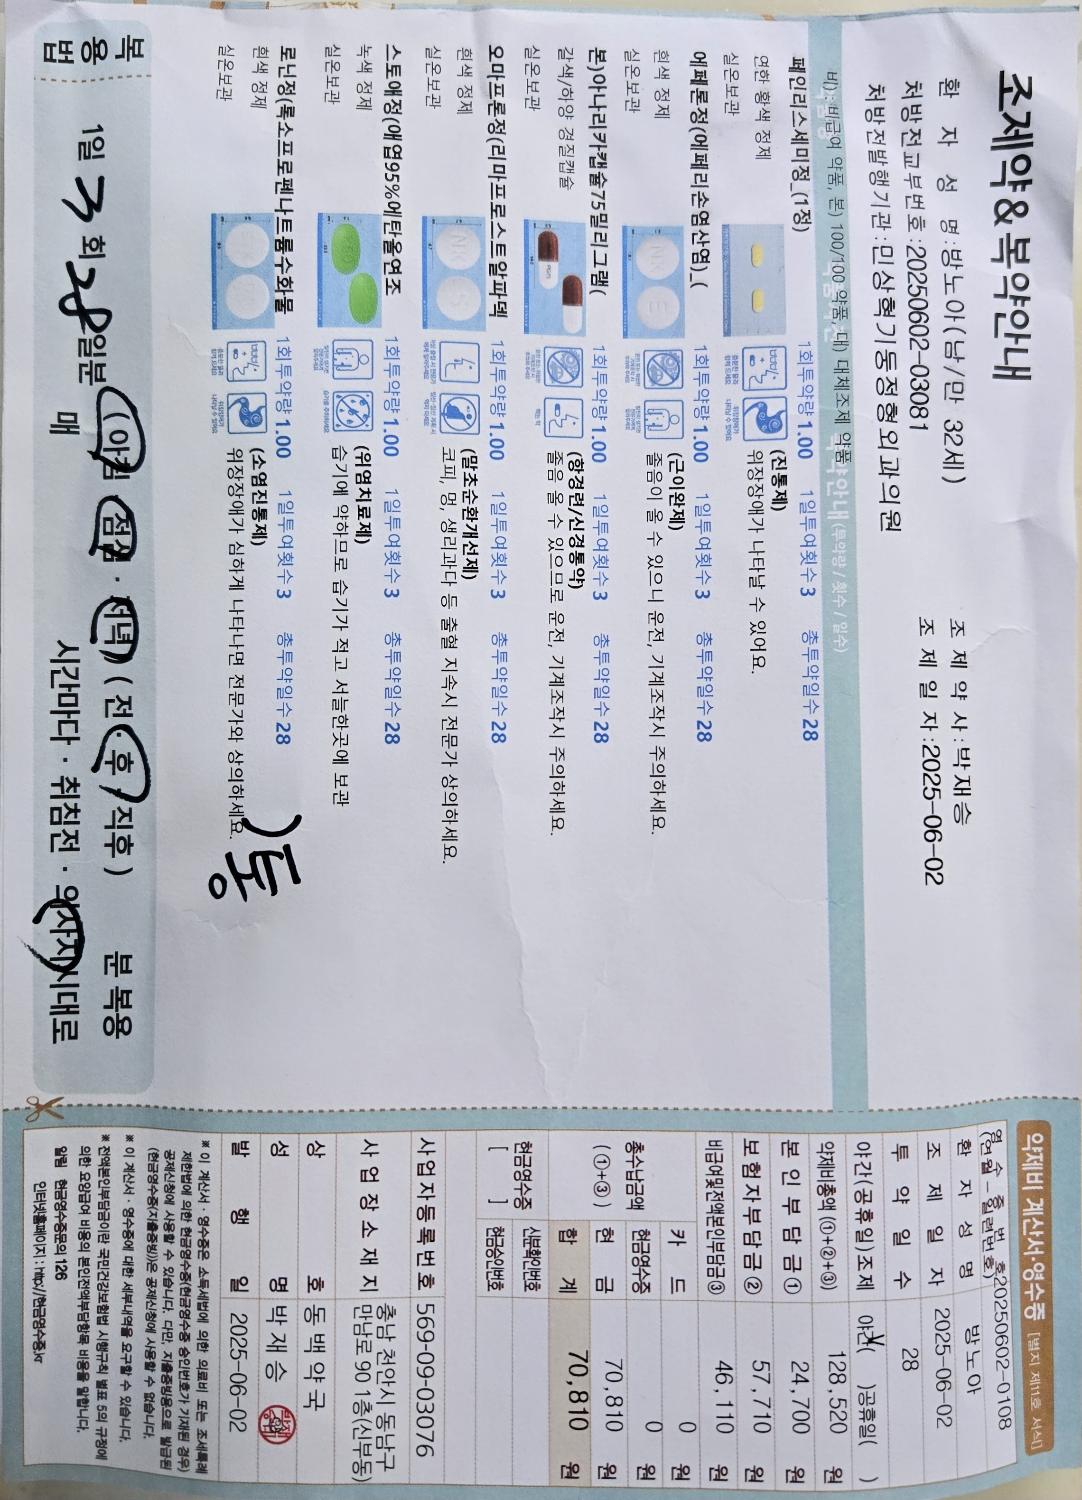 조제약&복약안내
환 자 성 명:방노아(남/만 32세)
처방전교부번호:20250602-03081
처방전발행기관:민상혁기동정형외과의원
조 제 약 사:박재승
조 제 일 자:2025-06-02
비):비급여 약품, 본) 100/100 약품, 대) 대체조제 약품
약안내 (투약량 / 횟수 / 일수)
페인리스세미정_(1정)
연한 황색 정제
실온보관
1회투약량 1.00 1일투여횟수 3 총투약일수 28
(진통제)
위장장애가 나타날 수 있어요.
에페론정(에페리손염산염)_(
흰색 정제
실온보관
1회투약량 1.00 1일투여횟수 3 총투약일수 28
(근이완제)
졸음이 올 수 있으니 운전, 기계조작시 주의하세요.
본)아나리카캡슐75밀리그램(
갈색/하양 경질캡슐
실온보관
1회투약량 1.00 1일투여횟수 3 총투약일수 28
(항경련/신경통약)
졸음 올 수 있으므로 운전, 기계조작시 주의하세요.
오마프론정(리마프로스트알파덱
흰색 정제
실온보관
1회투약량 1.00 1일투여횟수 3 총투약일수 28
(말초순환개선제)
코피, 멍, 생리과다 등 출혈 지속시 전문가 상의하세요.
스토애정(애엽95%에탄올연조
녹색 정제
실온보관
1회투약량 1.00 1일투여횟수 3 총투약일수 28
(위염치료제)
습기에 약하므로 습기가 적고 서늘한곳에 보관
로닌정(록소프로펜나트륨수화물
흰색 정제
실온보관
1회투약량 1.00 1일투여횟수 3 총투약일수 28
(소염진통제)
위장장애가 심하게 나타나면 전문가와 상의하세요.
)통
복용법
1일 3 회 28일분 (아침 · 점심 · 저녁) ( 전 · 후 · 직후 ) 분 복용
매 시간마다 · 취침전 · 의사지시대로
약제비 계산서·영수증 [별지 제11호 서식]
영 수 증 번 호
(연월-일련번호) 20250602-0108
환 자 성 명 방노아
조 제 일 자 2025-06-02
투 약 일 수 28
야간(공휴일)조제 야간( )공휴일( )
약제비총액 (①+②+③) 128,520 원
본 인 부 담 금 ① 24,700 원
보험자부담금 ② 57,710 원
비급여및전액본인부담금③ 46,110 원
총수납금액 (①+③)
카 드 0 원
현금영수증 0 원
현 금 70,810 원
합 계 70,810 원
현금영수증 [ ]
신분확인번호
현금승인번호
사업자등록번호 569-09-03076
사 업 장 소 재 지 충남 천안시 동남구
만남로 90 1층(신부동)
상 호 동백약국
성 명 박재승
발 행 일 2025-06-02
※ 이 계산서 · 영수증은 소득세법에 의한 의료비 또는 조세특례
제한법에 의한 현금영수증(현금영수증 승인번호가 기재된 경우)
공제신청에 사용할 수 있습니다. 다만, 지출증빙용으로 발급된
(현금영수증(지출증빙))은 공제신청에 사용할 수 없습니다.
※ 이 계산서 · 영수증에 대한 세부내역을 요구할 수 있습니다.
※ 전액본인부담금이란 국민건강보험법 시행규칙 별표 5의 규정에
의한 요양급여 비용의 본인전액부담항목 비용을 말합니다.
알림 현금영수증문의 126
인터넷홈페이지 : http://현금영수증.kr